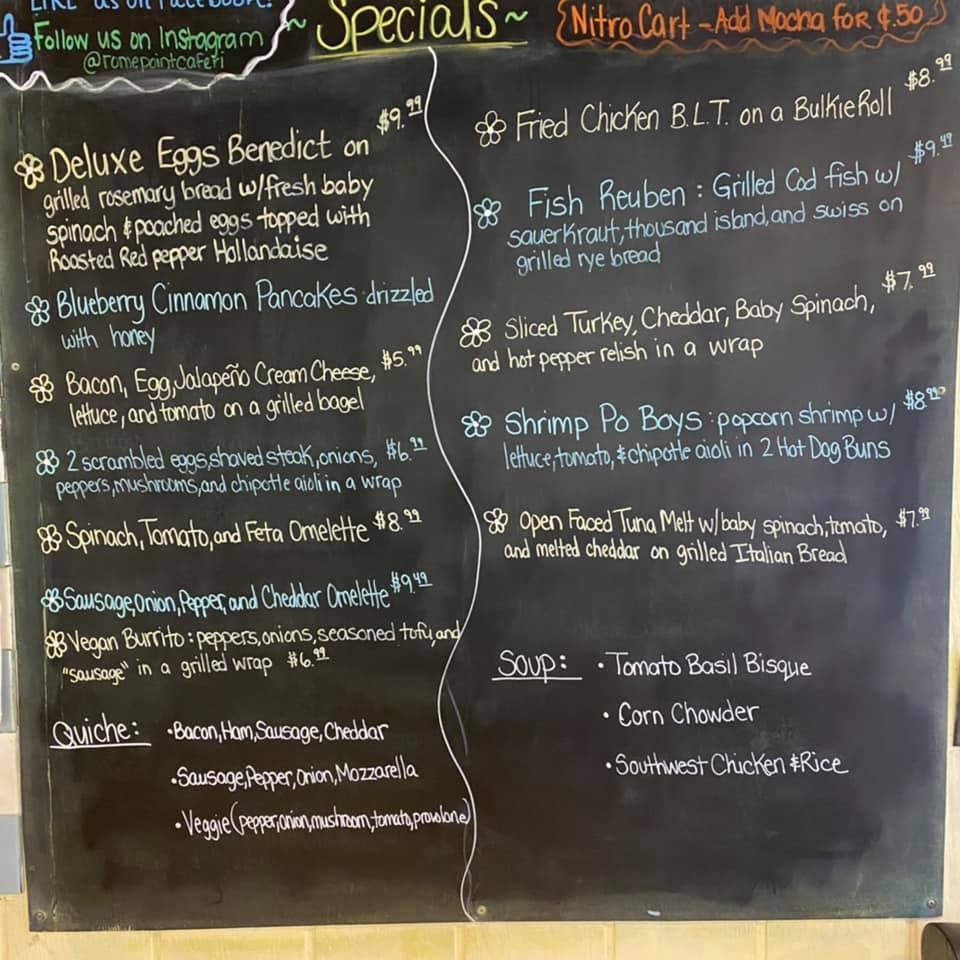 LIKE us on Facebook!
Follow us on Instagram
@romepointcaferi
~ Specials ~
{Nitro Cart - Add Mocha for $.50}
Deluxe Eggs Benedict on $9.99
grilled rosemary bread w/fresh baby
spinach & poached eggs topped with
Roasted Red pepper Hollandaise
Blueberry Cinnamon Pancakes drizzled
with honey
Bacon, Egg, Jalapeño Cream Cheese, $5.99
lettuce, and tomato on a grilled bagel
2 scrambled eggs, shaved steak, onions, $6.99
peppers, mushrooms, and chipotle aioli in a wrap
Spinach, Tomato, and Feta Omelette $8.99
Sausage, Onion, Pepper, and Cheddar Omelette $9.49
Vegan Burrito: peppers, onions, seasoned tofu, and
"sausage" in a grilled wrap $6.99
Quiche: • Bacon, Ham, Sausage, Cheddar
• Sausage, Pepper, Onion, Mozzarella
• Veggie (pepper, onion, mushroom, tomato, provolone)
Fried Chicken B.L.T. on a Bulkie Roll $8.99
Fish Reuben: Grilled Cod fish w/ $9.49
sauerkraut, thousand island, and swiss on
grilled rye bread
Sliced Turkey, Cheddar, Baby Spinach, $7.99
and hot pepper relish in a wrap
Shrimp Po Boys: popcorn shrimp w/ $8.99
lettuce, tomato, & chipotle aioli in 2 Hot Dog Buns
Open Faced Tuna Melt w/baby spinach, tomato, $7.99
and melted cheddar on grilled Italian Bread
Soup: • Tomato Basil Bisque
• Corn Chowder
• Southwest Chicken & Rice